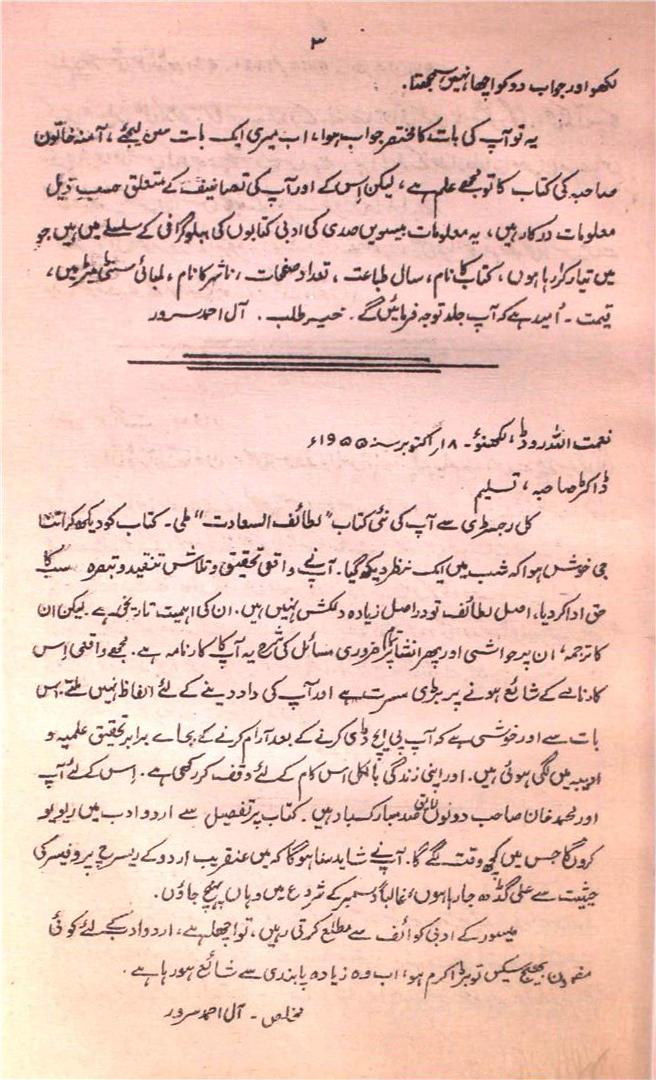 ۳
لکھو اور جواب دو کو اچھا نہیں سمجھتا۔
یہ تو آپ کی بات کا مختصر جواب ہوا، اب میری ایک بات سن لیجئے، آمنہ خاتون
صاحبہ کی کتاب کا تو مجھے علم ہے، لیکن اِس کے اور آپ کی تصانیف کے متعلق حسب ذیل
معلومات درکار ہیں، یہ معلومات بیسویں صدی کی ادبی کتابوں کی ببلوگرافی کے سلسلے میں ہیں جو
میں تیار کرا رہا ہوں، کتاب کا نام، سال طباعت، تعداد صفحات، ناشر کا نام، لمبائی سنٹی میٹر میں،
قیمت۔ اُمید ہے کہ آپ جلد توجہ فرمائیں گے۔ خیر طلب۔ آل احمد سرور
نعمت اللہ روڈ، لکھنؤ۔ ۱۸ اکتوبر سنہ ۱۹۵۵ء
ڈاکٹر صاحبہ، تسلیم
کل رجسٹری سے آپ کی نئی کتاب "لطائف السعادت" ملی۔ کتاب کو دیکھ کر اتنا
جی خوش ہوا کہ شب میں ایک نظر دیکھ گیا۔ آپ نے واقعی تحقیق و تلاش تنقید و تبصرہ سب کا
حق ادا کر دیا، اصل لطائف تو دراصل زیادہ دلکش نہیں ہیں۔ ان کی اہمیت تاریخی ہے لیکن ان
کا ترجمہ، ان پر حواشی اور پھر انشا پر تمام ضروری مسائل کی شرح یہ آپ کا کارنامہ ہے۔ مجھے واقعی اِس
کارنامے کے شائع ہونے پر بڑی مسرت ہے اور آپ کی داد دینے کے لئے الفاظ نہیں ملتے۔ اس
بات سے اور خوشی ہے کہ آپ پی ایچ ڈی کرنے کے بعد آرام کرنے کے بجائے برابر تحقیق علمیہ و
ادبیہ میں لگی ہوئی ہیں۔ اور اپنی زندگی بالکل اس کام کے لئے وقف کر رکھی ہے۔ اِس کے لئے آپ
اور محمد خان صاحب دونوں لائق صد مبارکباد ہیں۔ کتاب پر تفصیل سے اردو ادب میں ریویو
کروں گا جس میں کچھ وقت لگے گا۔ آپ نے شاید سنا ہوگا کہ میں عنقریب اردو کے ریسرچ پروفیسر کی
حیثیت سے علی گڈھ جا رہا ہوں، غالباً دسمبر کے شروع میں وہاں پہنچ جاؤں۔
میسور کے ادبی کوائف سے مطلع کرتی رہیں، تو اچھا ہے، اردو ادب کے لئے کوئی
مضمون بھیج سکیں تو بڑا کرم ہو، اب وہ زیادہ پابندی سے شائع ہو رہا ہے۔
مخلص۔ آل احمد سرور